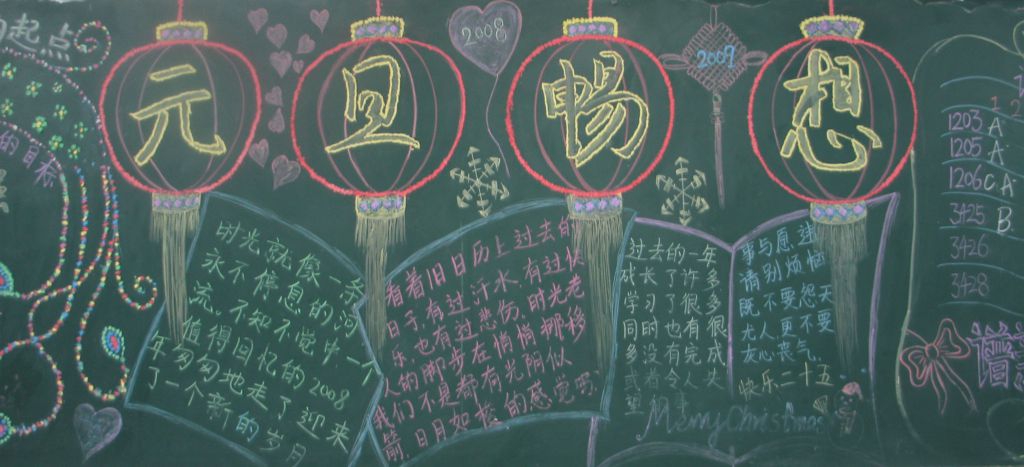 的起点
的目标
元旦畅想
2008
2009
时光就像一条
永不停息的河
流,不知不觉中一个
值得回忆的2008
年匆匆地走了迎来
了一个新的岁月
看着旧日历上过去的
日子,有过汗水,有过快
乐,也有过悲伤,时光老
人的脚步在悄悄挪移
我们不是都有光阴似
箭,日月如梭的感觉吗
过去的一年
成长了许多
学习了很多
同时也有很
多没有完成
或者令人失
望
事与愿违
请别烦恼
既不要怨天
尤人更不要
灰心丧气,
快乐二十五
Merry Christmas
1203 A
1205 A
1206 C A
3425 B
3426
3428